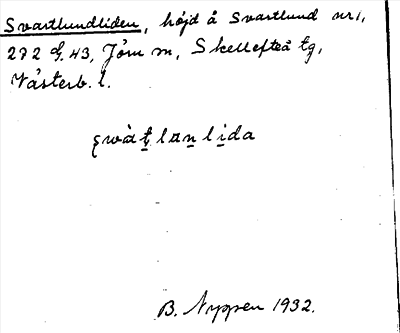 Svartlundliden, höjd å Svartlund nr 1,
272 G. 43, Jörn sn, Skellefteå tg,
Västerb. l.
B. Nyssen 1932.